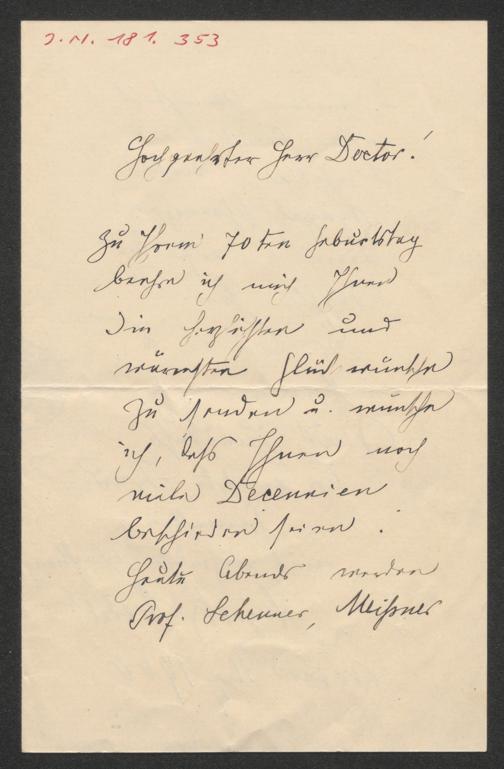 J.N. 181.353
Hochgeehrter Herr Doctor!
Zu Ihrem 70ten Geburtstag
beehre ich mich Ihnen
die herzlichsten und
wärmsten Glückwünsche
zu senden u. wünsche
ich, daß Ihnen noch
viele Decennien
beschieden seien.
Heute Abends werden
Prof. Schenner, Meißner